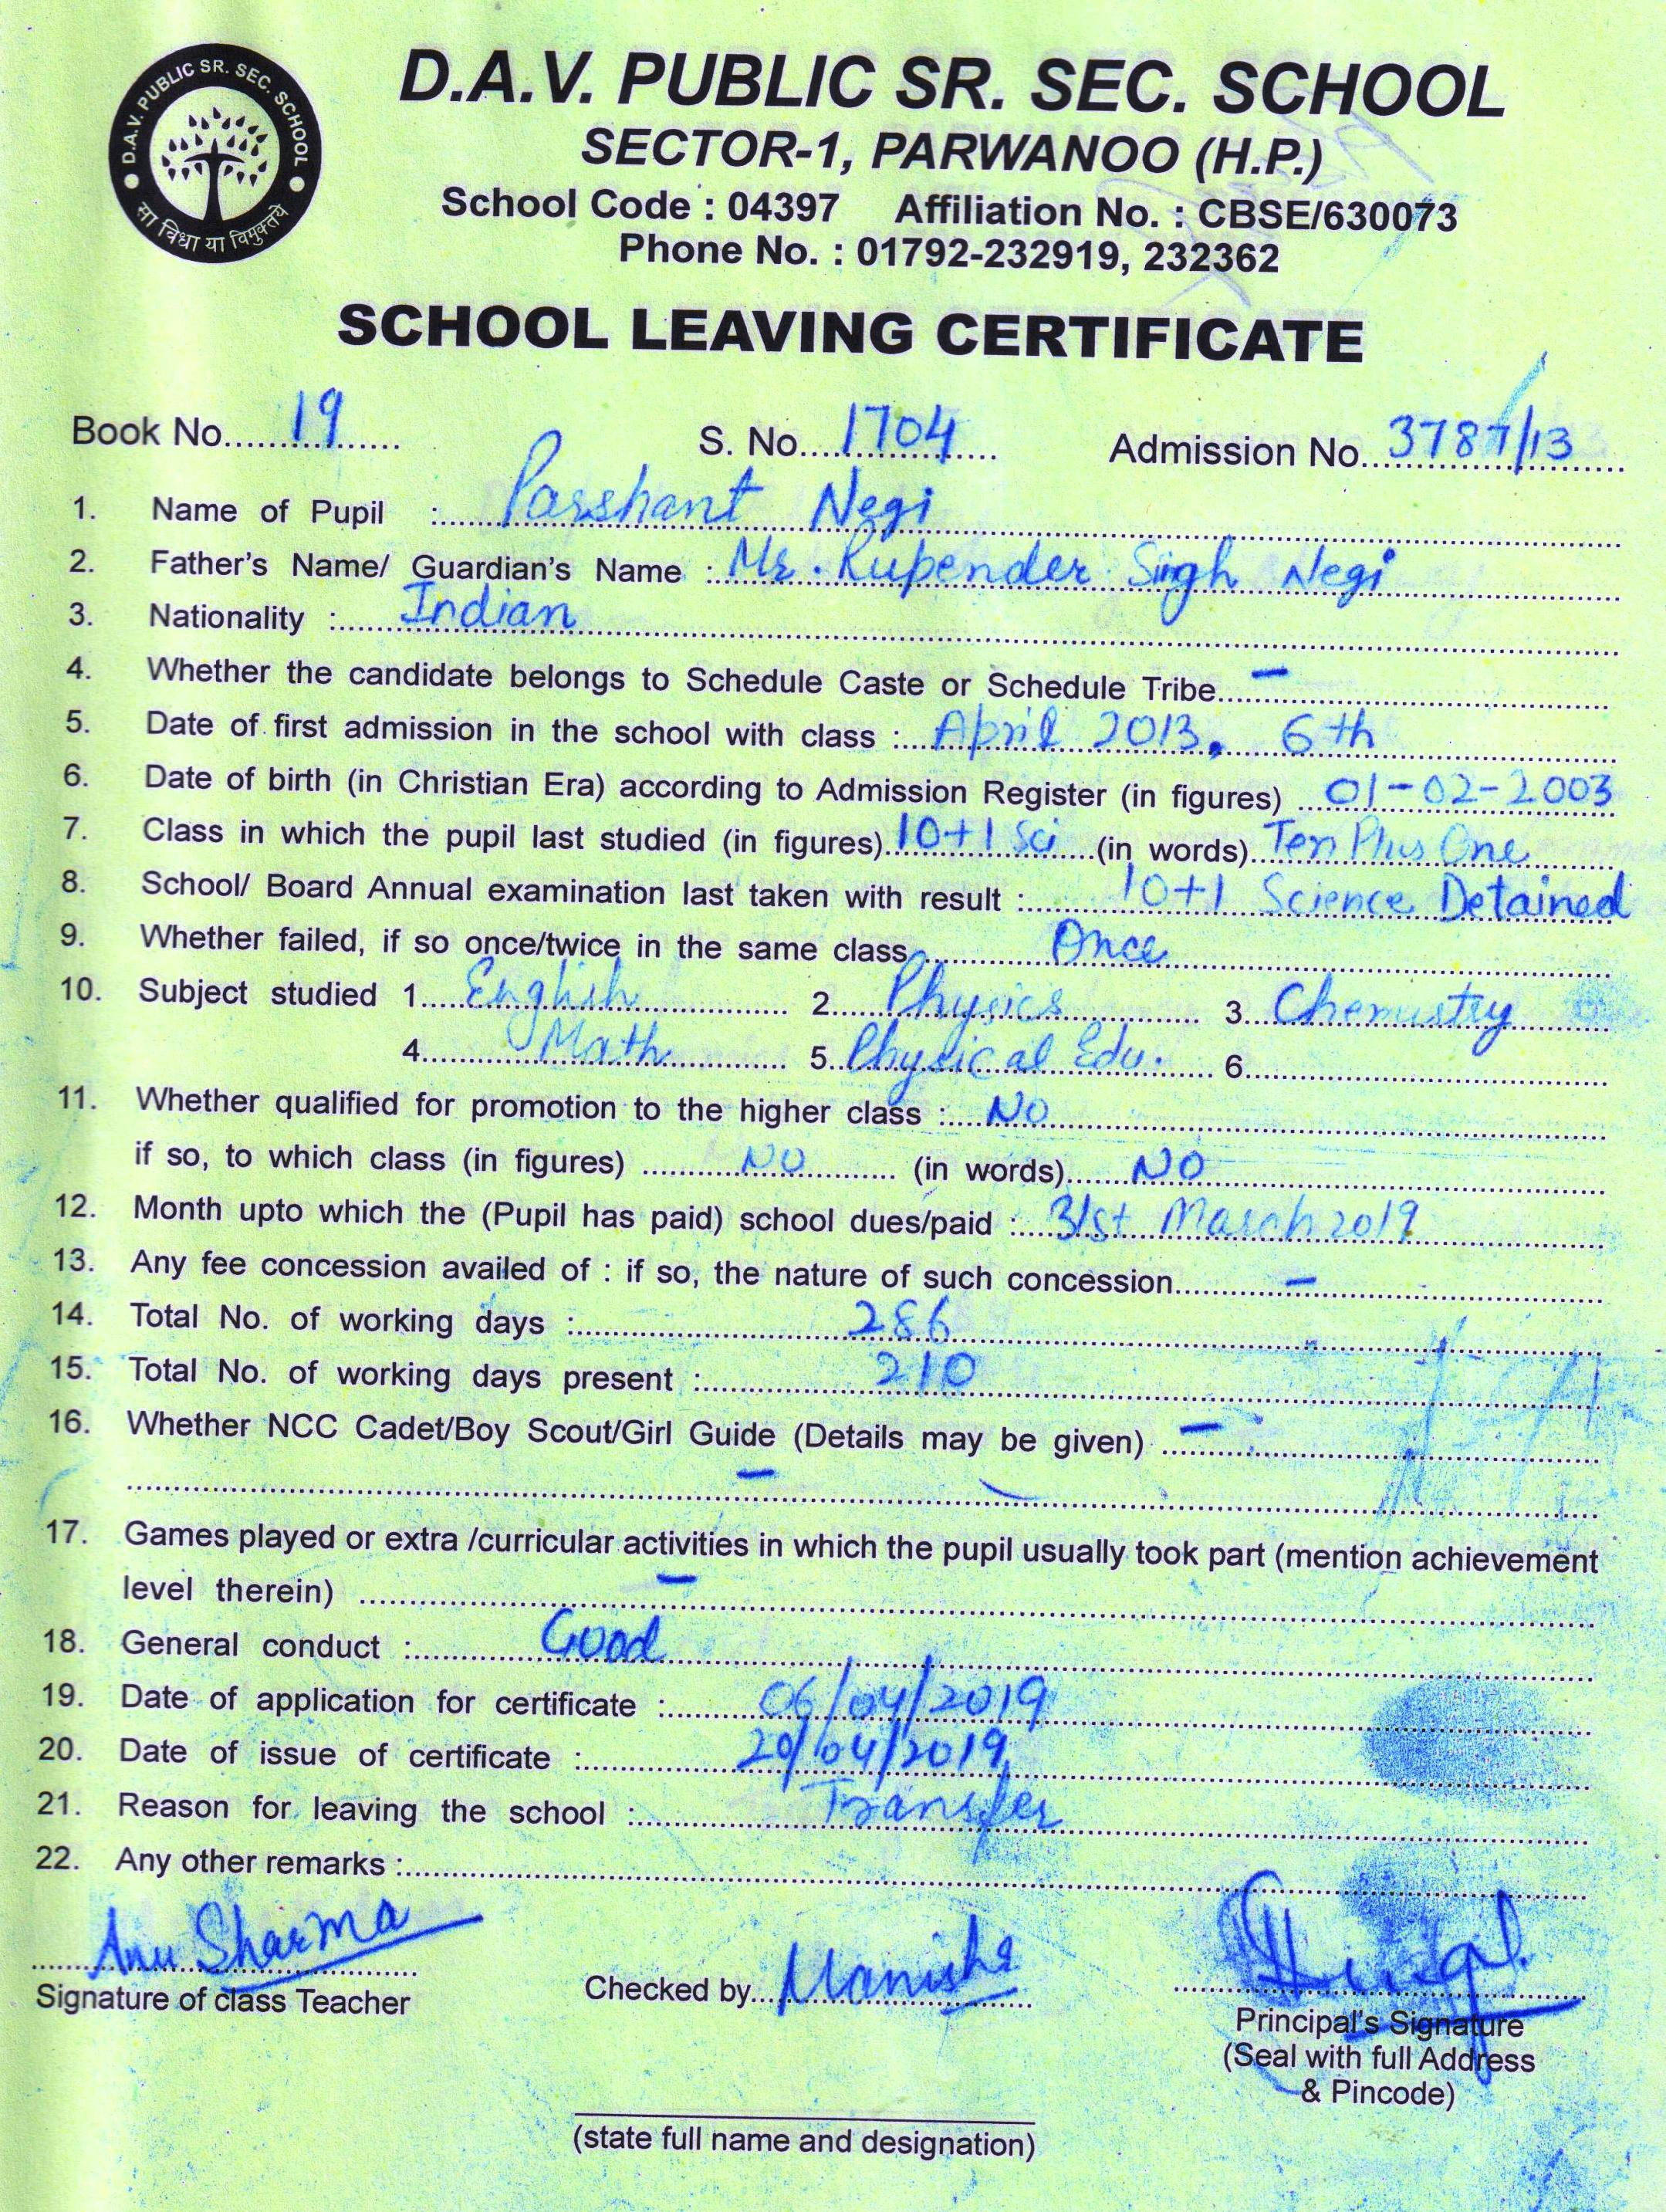 D.A.V. PUBLIC SR. SEC. SCHOOL
सा विद्या या विमुक्तये
D.A.V. PUBLIC SR. SEC. SCHOOL
SECTOR-1, PARWANOO (H.P.)
School Code : 04397 Affiliation No. : CBSE/630073
Phone No. : 01792-232919, 232362
SCHOOL LEAVING CERTIFICATE
Book No. 19 S. No. 1704 Admission No. 3787/13
1. Name of Pupil : Parshant Negi
2. Father's Name/ Guardian's Name : Mr. Rupender Singh Negi
3. Nationality : Indian
4. Whether the candidate belongs to Schedule Caste or Schedule Tribe –
5. Date of first admission in the school with class : April 2013, 6th
6. Date of birth (in Christian Era) according to Admission Register (in figures) 01-02-2003
7. Class in which the pupil last studied (in figures) 10+1 Sci (in words) Ten Plus One
8. School/ Board Annual examination last taken with result : 10+1 Science Detained
9. Whether failed, if so once/twice in the same class Once
10. Subject studied 1 English 2 Physics 3 Chemistry
4 Math 5 Physical Edu. 6
11. Whether qualified for promotion to the higher class : NO
if so, to which class (in figures) NO (in words) NO
12. Month upto which the (Pupil has paid) school dues/paid : 31st March 2019
13. Any fee concession availed of : if so, the nature of such concession –
14. Total No. of working days : 286
15. Total No. of working days present : 210
16. Whether NCC Cadet/Boy Scout/Girl Guide (Details may be given) –
–
17. Games played or extra /curricular activities in which the pupil usually took part (mention achievement
level therein) –
18. General conduct : Good
19. Date of application for certificate : 06/04/2019
20. Date of issue of certificate : 20/04/2019
21. Reason for leaving the school : Transfer
22. Any other remarks :
Anu Sharma
Signature of class Teacher
Checked by Manisha
Principal's Signature
(Seal with full Address
& Pincode)
(state full name and designation)